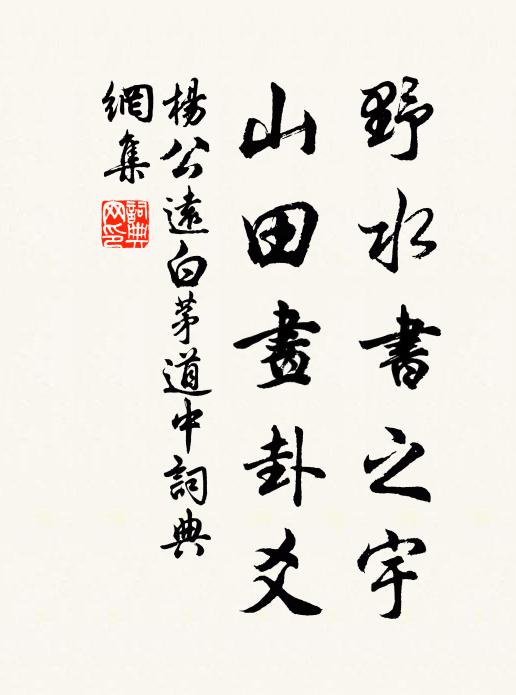 野水書之字
山田畫卦爻
楊公遠白茅道中詞典
網集
詞典
网印